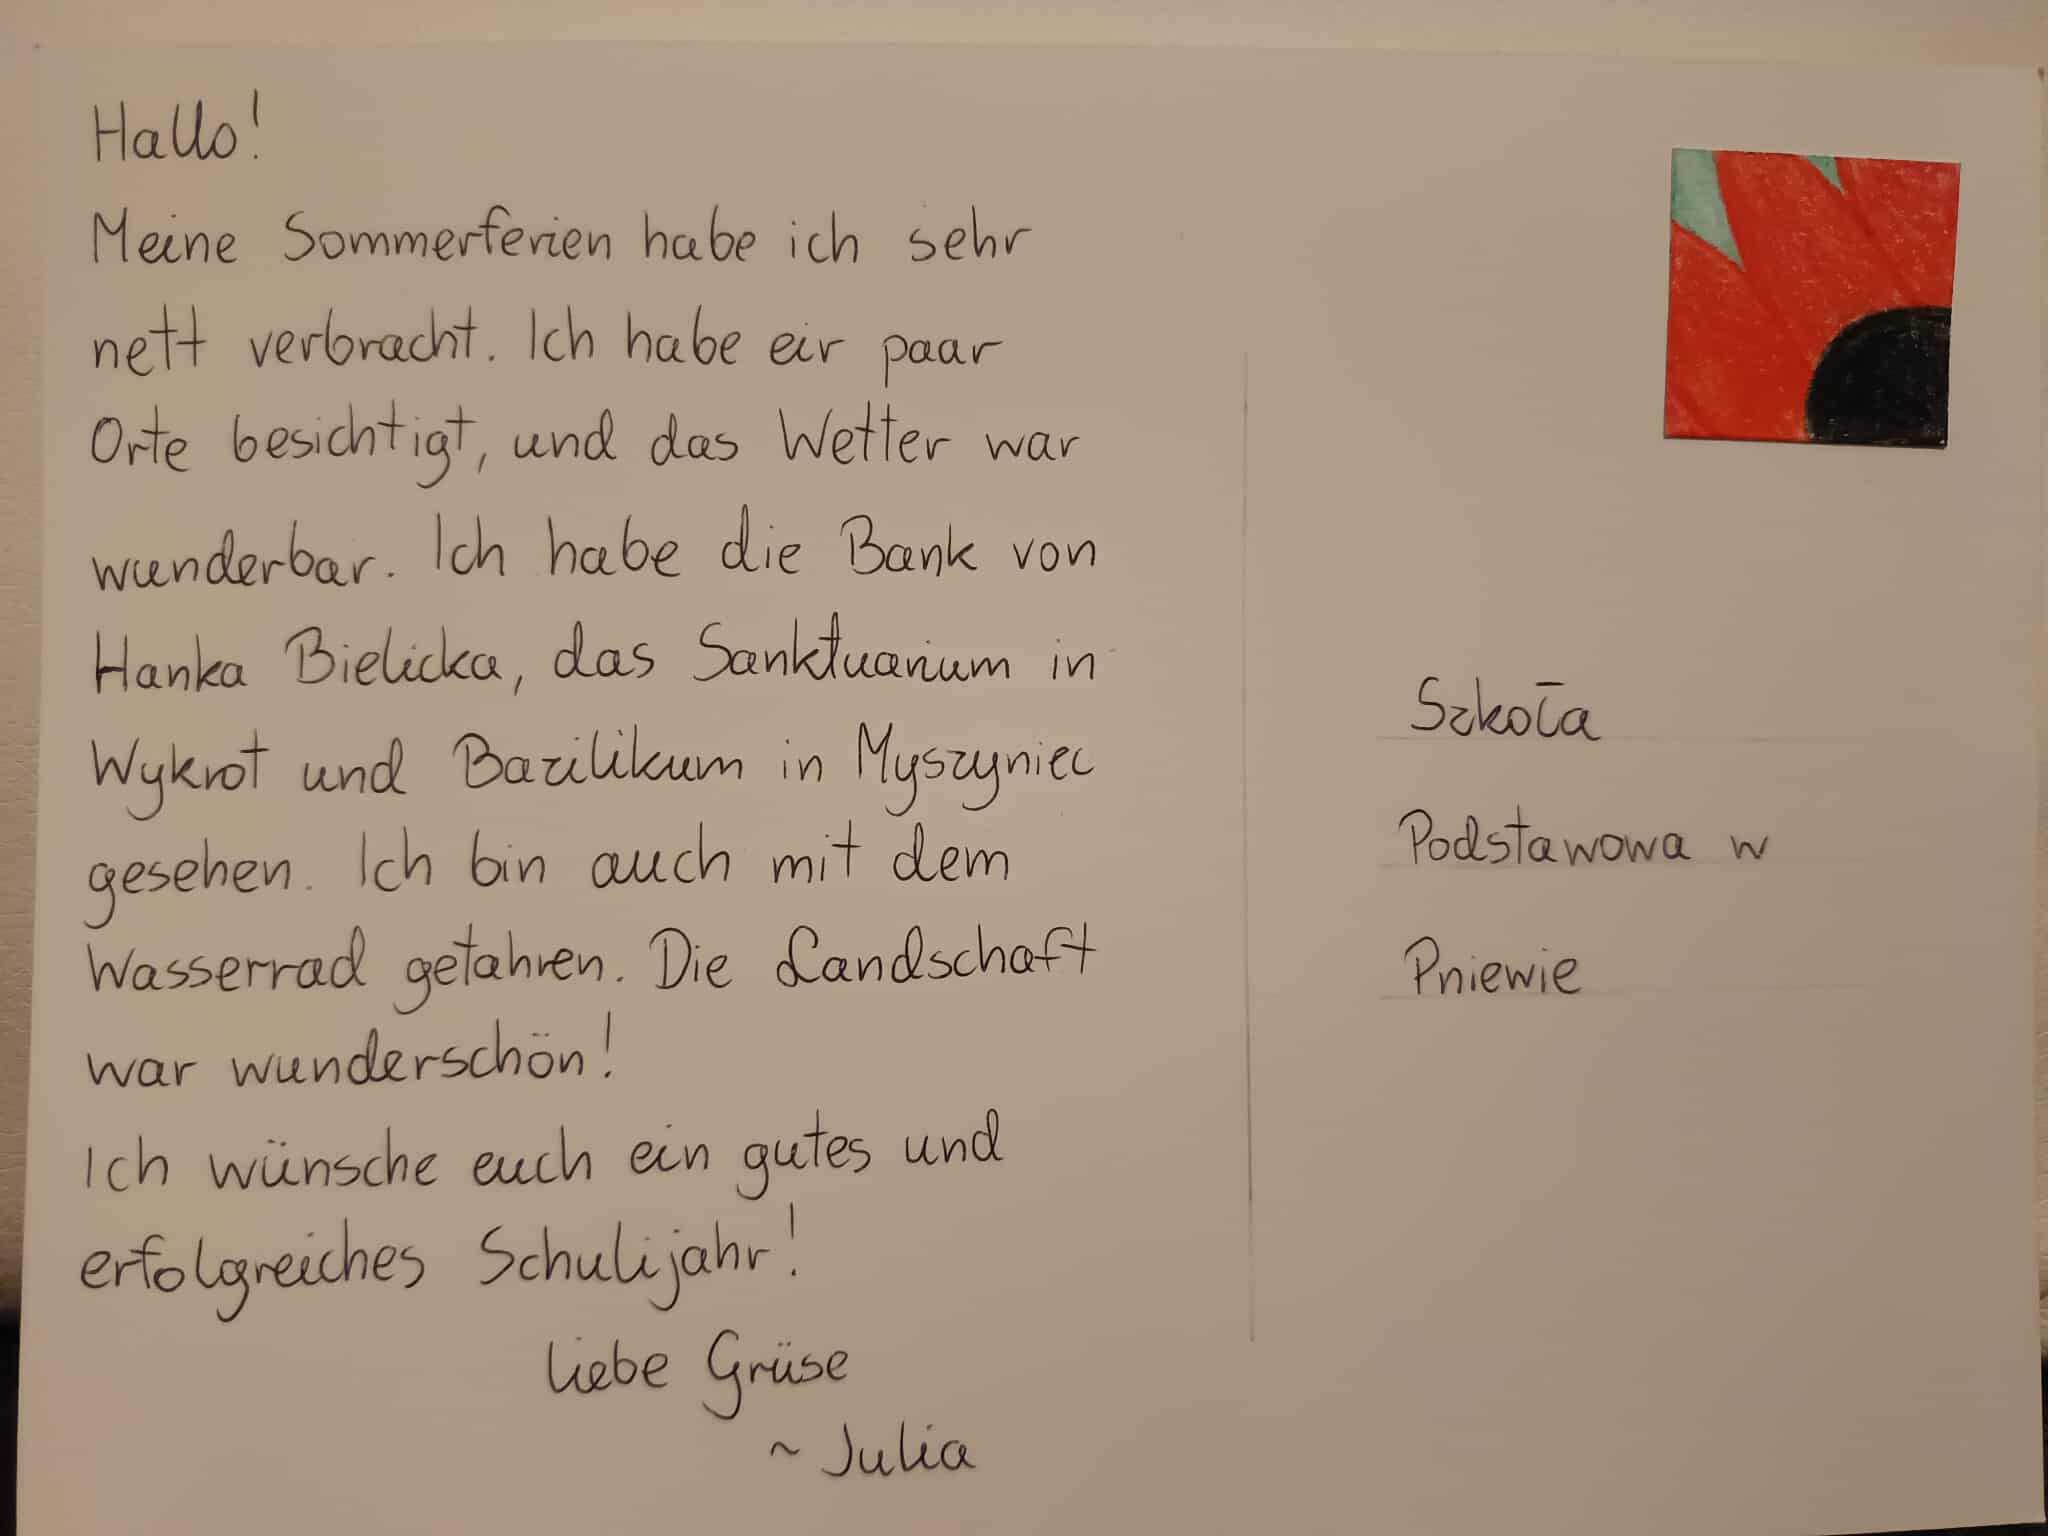 Hallo!
Meine Sommerferien habe ich sehr
nett verbracht. Ich habe eir paar
Orte besichtigt, und das Wetter war
wunderbar. Ich habe die Bank von
Hanka Bielicka, das Sanktuarium in
Wykrot und Bazilikum in Myszyniec
gesehen. Ich bin auch mit dem
Wasserrad getahren. Die Landschaft
war wunderschön!
Ich wünsche euch ein gutes und
erfolgreiches Schulijahr!
liebe Grüse
~ Julia
Szkoła
Podstawowa w
Pniewie